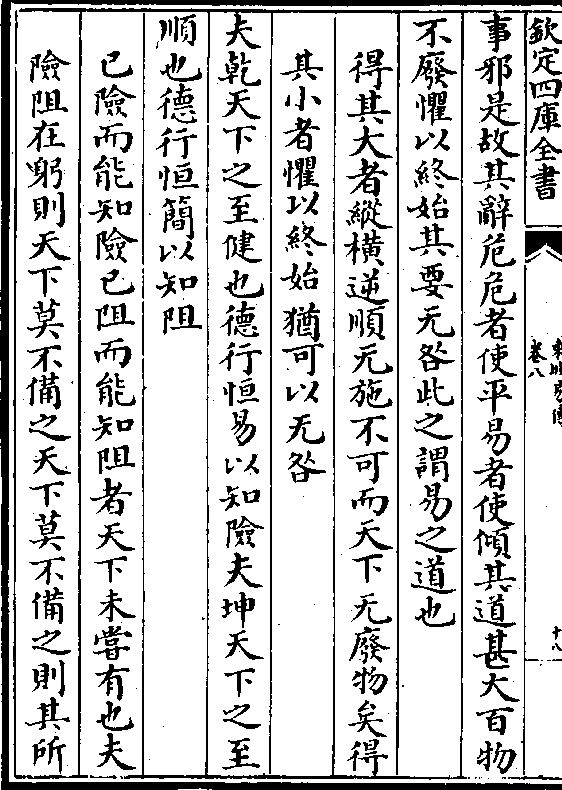 欽定四庫全書
東坡易傳
卷八
十八
事邪是故其辭危危者使平易者使傾其道甚大百物
不廢懼以終始其要无咎此之謂易之道也
得其大者縱橫逆順无施不可而天下无廢物矣得
其小者懼以終始猶可以无咎
夫乾天下之至健也德行恒易以知險夫坤天下之至
順也德行恒簡以知阻
已險而能知險已阻而能知阻者天下未嘗有也夫
險阻在躬則天下莫不備之天下莫不備之則其所